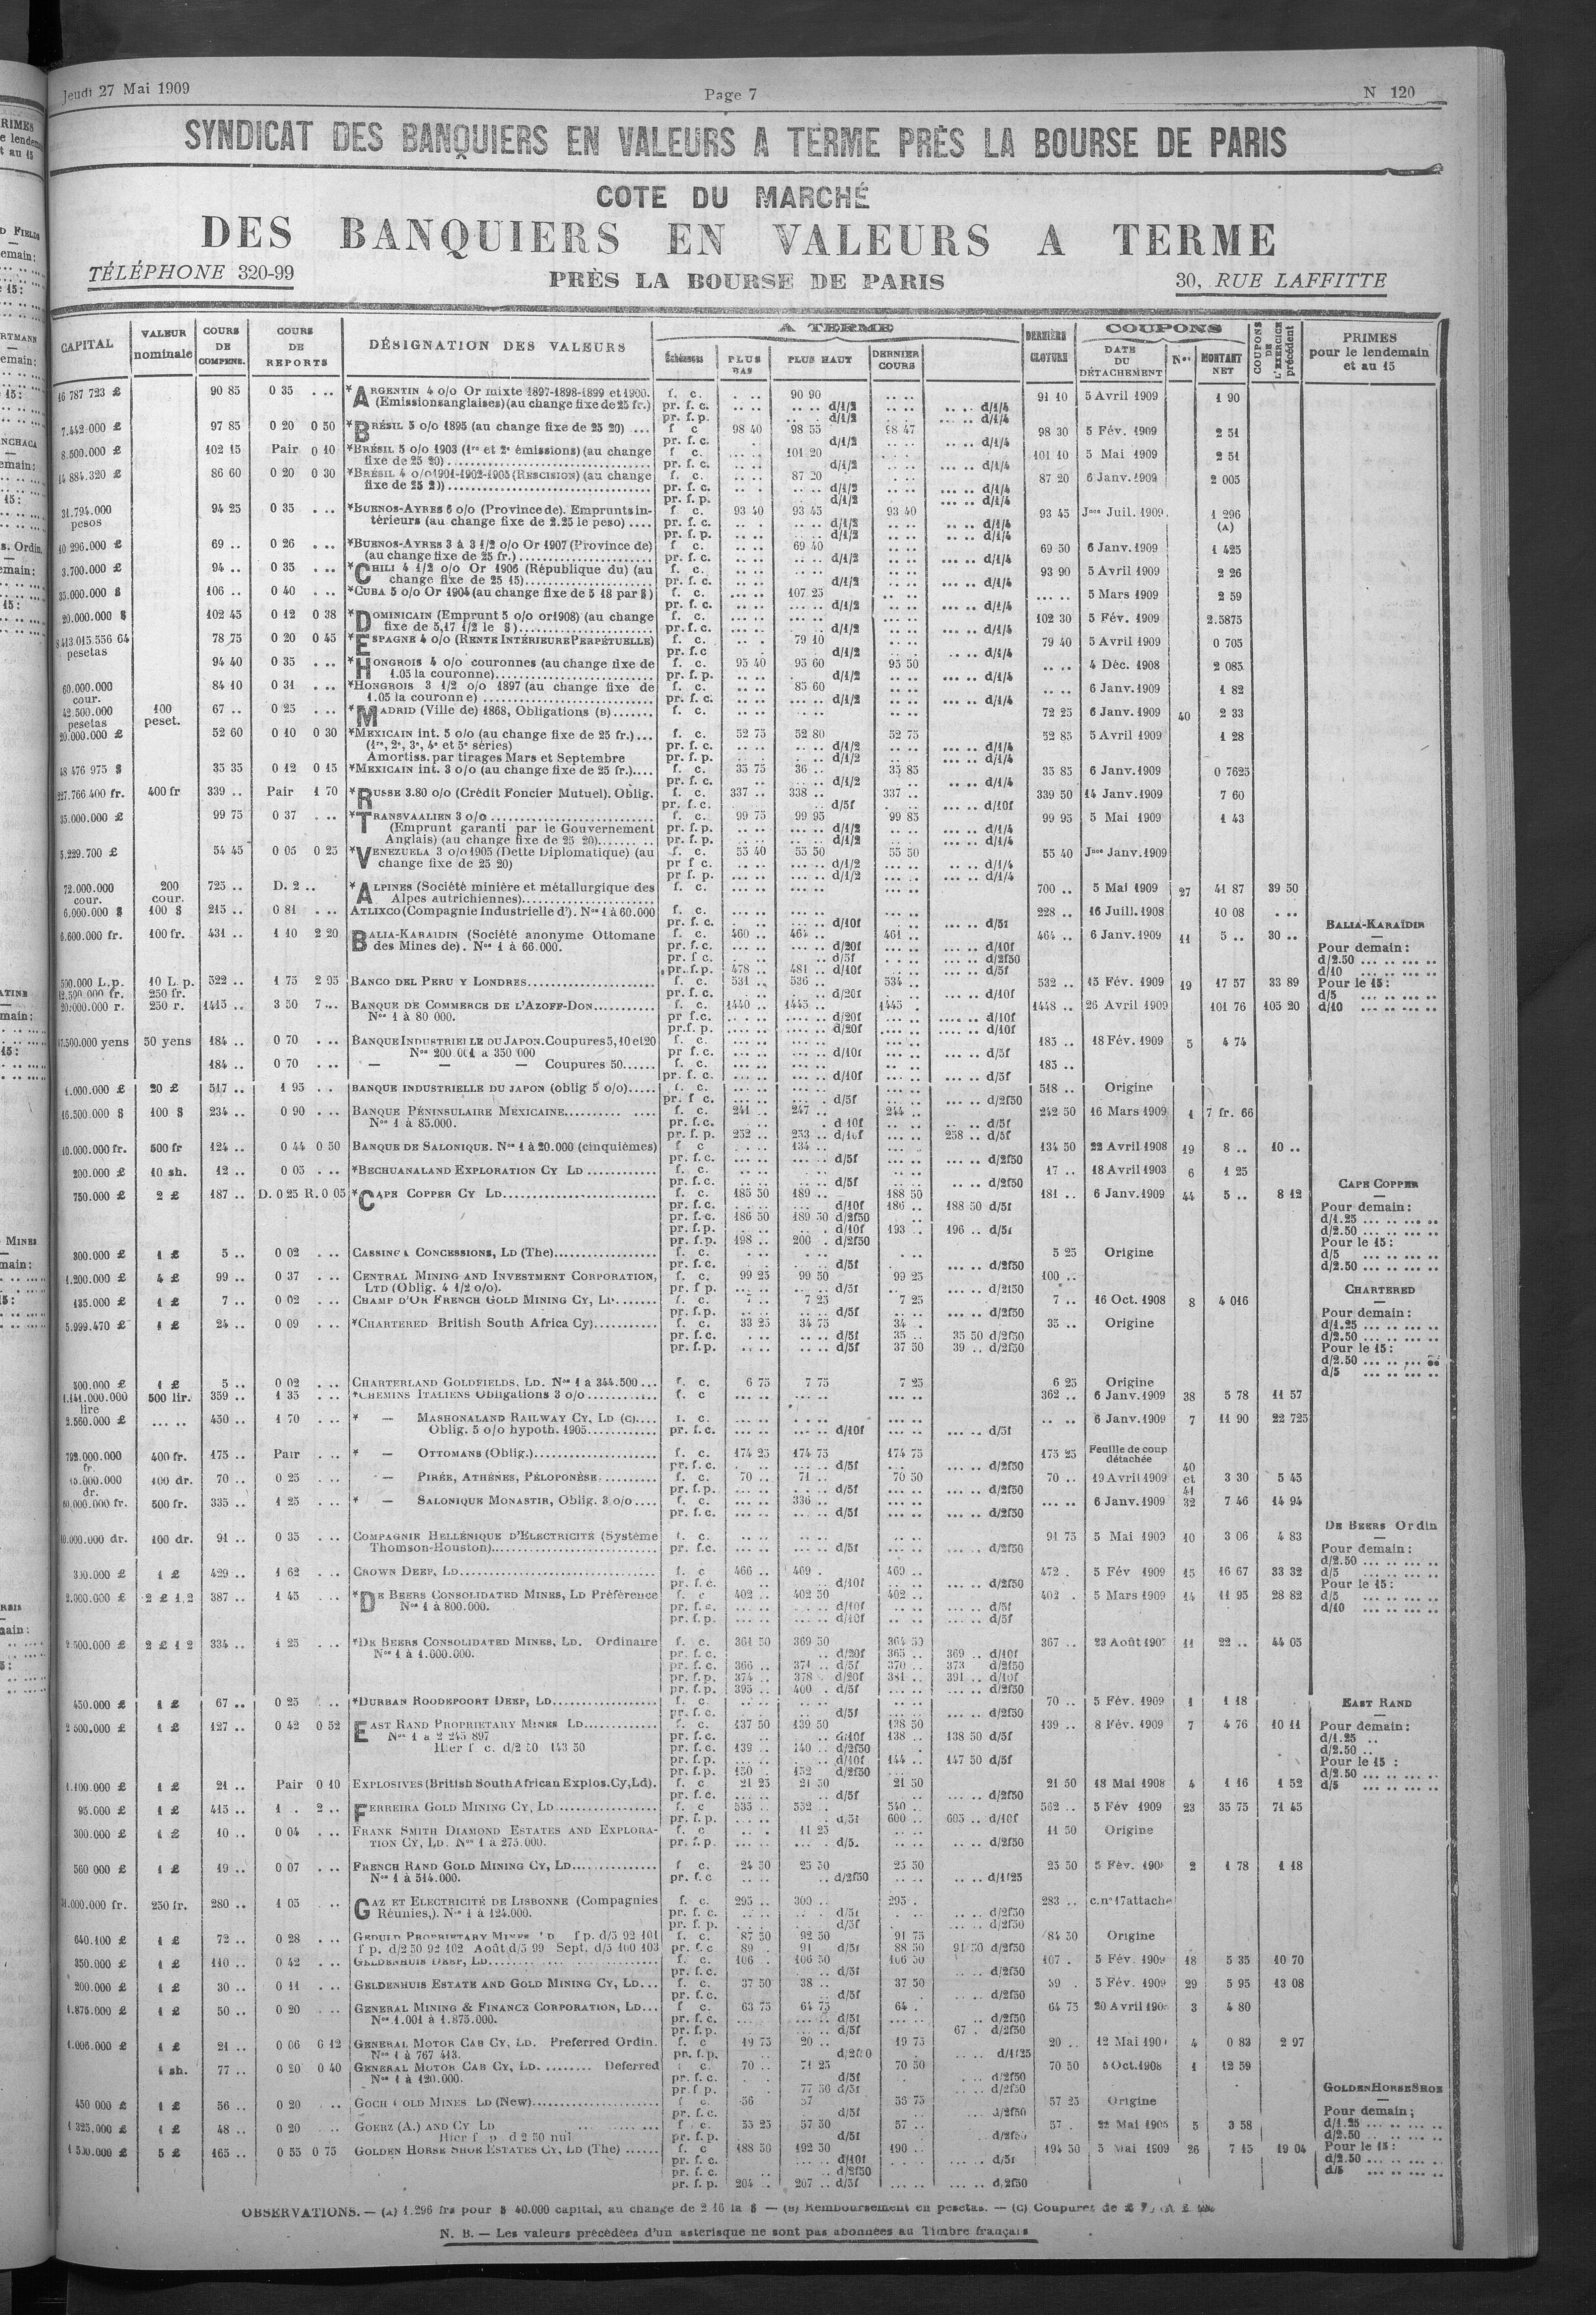 Jeudi 27 Mai 1909 Page 7 N 120
SYNDICAT DES BANQUIERS EN VALEURS A TERME PRÈS LA BOURSE DE PARIS
COTE DU MARCHÉ
DES BANQUIERS EN VALEURS A TERME
TÉLÉPHONE 320-99 PRÈS LA BOURSE DE PARIS 30, RUE LAFFITTE
CAPITAL VALEUR nominale COURS DE COMPENS. COURS DE REPORTS DÉSIGNATION DES VALEURS A TERME Échéances PLUS BAS PLUS HAUT DERNIER COURS DERNIÈRE CLOTURE COUPONS DATE DU DÉTACHEMENT Nos MONTANT NET COUPONS DE L'EXERCICE précédent PRIMES pour le lendemain et au 15
16 787 723 £ 90 85 0 35 . .. *ARGENTIN 4 o/o Or mixte 1897-1898-1899 et 1900. f. c. . .. 90 90 .. .. 91 10 5 Avril 1909 1 90
(Emissions anglaises) (au change fixe de 25 fr.) pr. f. c. .. .. .. .. d/1/2 .. .. .. .. d/1/4
pr. f. p. .. .. .. .. d/1/2 .. .. .. .. d/1/4
7.442.000 £ 97 85 0 20 0 50 *BRÉSIL 5 o/o 1895 (au change fixe de 25 20) .... f c 98 40 98 55 98 47 98 30 5 Fév. 1909 2 51
pr. f. c. d/1/2 d/1/4
8.500.000 £ 102 15 Pair 0 10 *BRÉSIL 5 o/o 1903 (1re et 2e émissions) (au change f c. 101 20 101 10 5 Mai 1909 2 51
fixe de 25 20) pr. f. c. d/1/2 d/1/4
14 884.320 £ 86 60 0 20 0 30 *BRÉSIL 4 o/o 1901-1902-1905 (RESCISION) (au change f. c. 87 20 87 20 6 Janv. 1909 2 005
fixe de 25 2)) pr. f. c. d/1/2 d/1/4
pr. f. p. d/1/2 d/1/4
31.794.000 pesos 94 25 0 35 . .. *BUENOS-AYRES 6 o/o (Province de). Emprunts in- f c. 93 40 93 45 93 40 93 45 Jnce Juil. 1909. 1 296 (A)
térieurs (au change fixe de 2.25 le peso) .... pr. f. c. d/1/2 d/1/4
pr. f. p. d/1/2 d/1/4
10 296.000 £ 69 .. 0 26 . .. *BUENOS-AYRES 3 à 3 1/2 o/o Or 1907 (Province de) f c. 69 40 69 50 6 Janv. 1909 1 425
(au change fixe de 25 fr.) pr. f. c. d/1/2 d/1/4
3.700.000 £ 94 .. 0 35 . .. *CHILI 4 1/2 o/o Or 1906 (République du) (au f. c. 93 90 5 Avril 1909 2 26
change fixe de 25 15) pr. f. c. d/1/2 d/1/4
35.000.000 $ 106 .. 0 40 . .. *CUBA 5 o/o Or 1904 (au change fixe de 5 18 par $) f. c. 107 25 .. .. 5 Mars 1909 2 59
pr. f. c. d/1/2 d/1/4
20.000.000 $ 102 45 0 12 0 38 *DOMINICAIN (Emprunt 5 o/o or 1908) (au change f. c. 102 30 5 Fév. 1909 2.5875
fixe de 5,17 1/2 le $) pr. f. c. d/1/2 d/1/4
8 413.015.556 64 pesetas 78 75 0 20 0 45 *ESPAGNE 4 o/o (RENTE INTÉRIEURE PERPÉTUELLE) f. c. 79 10 79 40 5 Avril 1909 0 705
pr. f. c d/1/2 d/1/4
94 40 0 35 . .. *HONGROIS 4 o/o couronnes (au change fixe de f. c. 95 40 95 60 95 50 .. .. 4 Déc. 1908 2 085
1.05 la couronne) pr. f. p. d/1/2 d/1/4
60.000.000 cour. 84 10 0 31 . .. *HONGROIS 3 1/2 o/o 1897 (au change fixe de f. c. 85 60 .. .. 6 Janv. 1909 1 82
1.05 la couronne) pr. f. c. d/1/2 d/1/4
42.500.000 pesetas 100 peset. 67 .. 0 25 . .. *MADRID (Ville de) 1868, Obligations (B) f. c. 72 25 6 Janv. 1909 40 2 33
20.000.000 £ 52 60 0 10 0 30 *MEXICAIN int. 5 o/o (au change fixe de 25 fr.) f. c. 52 75 52 80 52 75 52 85 5 Avril 1909 1 28
(1re, 2e, 3e, 4e et 5e séries) pr. f. c. d/1/2 d/1/4
Amortiss. par tirages Mars et Septembre pr. f. p. d/1/2 d/1/4
48 476 975 $ 35 35 0 12 0 15 *MEXICAIN int. 3 o/o (au change fixe de 25 fr.) f. c. 35 75 36 .. 35 85 35 85 6 Janv. 1909 0 7625
pr. f. c. d/1/2 d/1/4
227.766 400 fr. 400 fr 339 .. Pair 1 70 *RUSSE 3.80 o/o (Crédit Foncier Mutuel). Oblig. f. c. 337 .. 338 .. 337 .. 339 50 14 Janv. 1909 7 60
pr. f. c. d/5f d/10f
35.000.000 £ 99 75 0 37 . .. *TRANSVAALIEN 3 o/o f. c. 99 75 99 95 99 85 99 95 5 Mai 1909 1 43
(Emprunt garanti par le Gouvernement pr. f. p. d/1/2 d/1/4
Anglais) (au change fixe de 25 20) pr. f. p. d/1/2 d/1/4
5.229.700 £ 54 45 0 05 0 25 *VENEZUELA 3 o/o 1905 (Dette Diplomatique) (au f. c. 55 40 55 50 55 50 55 40 Jnce Janv. 1909
change fixe de 25 20) pr f c. d/1/2 d/1/4
pr f. p. d/1/2 d/1/4
72.000.000 cour. 200 cour. 725 .. D. 2 .. *ALPINES (Société minière et métallurgique des f. c. 700 .. 5 Mai 1909 27 41 87 39 50
Alpes autrichiennes)
6.000.000 $ 100 $ 215 .. 0 81 . .. ATLIXCO (Compagnie Industrielle d'). Nos 1 à 60.000 f. c. 228 .. 16 Juill. 1908 10 08 ...
pr. f. c. d/10f d/5f
6.600.000 fr. 100 fr. 431 .. 1 10 2 20 BALIA-KARAIDIN (Société anonyme Ottomane f. c. 460 .. 464 .. 461 .. 464 .. 6 Janv. 1909 11 5 .. 30 ..
des Mines de). Nos 1 à 66.000. pr. f. c. d/20f d/10f
pr. f c. d/5f d/2f50
pr. f. p. 478 .. 481 .. d/10f d/5f
BALIA-KARAÏDIN
Pour demain:
d/2.50
d/10
Pour le 15:
d/5
d/10
590.000 L.p. 10 L. p. 522 .. 1 75 2 95 BANCO DEL PERU Y LONDRES f. c. 531 .. 536 .. 534 .. 532 .. 15 Fév. 1909 19 17 57 33 89
12.500 000 fr. 250 fr. pr. f. c. d/20f d/10f
20.000.000 r. 250 r. 1415 .. 3 50 7 .. BANQUE DE COMMERCE DE L'AZOFF-DON f. c. 1440 .. 1445 .. 1445 . 1448 .. 26 Avril 1909 101 76 105 20
Nos 1 à 80 000. pr f.c. d/20f d/10f
pr.f. p. d/20f d/10f
17.500.000 yens 50 yens 184 .. 0 70 . .. BANQUE INDUSTRIELLE DU JAPON. Coupures 5, 10 et 20 f c. 185 .. 18 Fév. 1909 5 4 74
Nos 200 001 a 350 000 pr f.c. d/10f d/5f
184 .. 0 70 . .. — — — Coupures 50 f. c. 185 ..
pr. f.c. d/10f d/5f
1.000.000 £ 20 £ 517 .. 1 95 . . BANQUE INDUSTRIELLE DU JAPON (oblig 5 o/o) f. c. 518 .. Origine
pr. f c. d/5f d/2f50
16.500.000 $ 100 $ 234 .. 0 90 . .. BANQUE PÉNINSULAIRE MEXICAINE f. c. 241 .. 247 .. 244 .. 242 50 16 Mars 1909 1 7 fr. 66
Nos 1 à 85.000. pr. f.c. d 10f d/5f
pr. f. p. 252 .. 253 .. d/10f 258 .. d/5f
10.000.000 fr. 500 fr 124 .. 0 44 0 50 BANQUE DE SALONIQUE. Nos 1 à 20.000 (cinquièmes) f c 134 .. 134 50 22 Avril 1908 19 8 .. 10 ..
pr. f.c. d/5f d/2f50
200.000 £ 10 sh. 12 .. 0 05 . .. *BECHUANALAND EXPLORATION CY LD f. c. 17 .. 18 Avril 1903 6 1 25
pr. f.c. d/5f d/2f50
750.000 £ 2 £ 187 .. D. 0 25 R. 0 05 *CAPE COPPER CY LD f. c. 185 50 189 .. 188 50 181 .. 6 Janv. 1909 44 5 .. 8 12
pr. f.c. d/10f 186 .. 188 50 d/5f
pr. f.c. 186 50 189 50 d/2f50
pr. f.p. d/10f 193 .. 196 .. d/5f
pr. f.p. 198 .. 200 . d/2f50
CAPE COPPER
Pour demain:
d/1.25
d/2.50
Pour le 15:
d/5
d/2.50
300.000 £ 1 £ 5 .. 0 02 . .. CASSINGA CONCESSIONS, LD (The) f. c. 5 25 Origine
pr. f.c. d/5f d/2f50
1.200.000 £ 4 £ 99 .. 0 37 . .. CENTRAL MINING AND INVESTMENT CORPORATION, f. c. 99 25 99 50 99 25 100 ..
LTD (Oblig. 4 1/2 o/o). pr. f p. d/5f d/2f50
135.000 £ 1 £ 7 .. 0 02 . .. CHAMP D'OR FRENCH GOLD MINING CY, LD f. c. 7 .. 7 25 7 25 7 .. 16 Oct. 1908 8 4 016
pr. f.p. d/5f d/2f50
5.999.470 £ 1 £ 24 .. 0 09 . .. *CHARTERED British South Africa Cy) f. c. 33 25 34 75 34 .. 35 .. Origine
pr. f.c. d/5f 35 .. 35 50 d/2f50
pr. f.p. d/5f 37 50 39 .. d/2f50
CHARTERED
Pour demain:
d/1.25
d/2.50
Pour le 15:
d/2.50
d/5
500.000 £ 1 £ 5 .. 0 02 . .. CHARTERLAND GOLDFIELDS, LD. Nos 1 à 344.500 f. c. 6 75 7 75 7 25 6 25 Origine
1.141.000.000 lire 500 lir. 359 .. 1 35 . .. *CHEMINS ITALIENS Obligations 3 o/o f. c 362 .. 6 Janv. 1909 38 5 78 11 57
2.560.000 £ .. .. 450 .. 1 70 . .. * — MASHONALAND RAILWAY CY, LD (C) f. c. .. .. 6 Janv. 1909 7 11 90 22 725
Oblig. 5 o/o hypoth. 1905 pr. f.c. d/10f d/5f
792.000.000 fr. 400 fr. 175 .. Pair . .. * — OTTOMANS (Oblig.) f. c. 174 25 174 75 174 75 175 25 Feuille de coup détachée
pr. f.c. d/5f d/2f50
15.000.000 dr. 100 dr. 70 .. 0 25 . .. — PIRÉE, ATHÈNES, PÉLOPONÈSE f. c. 70 .. 71 .. 70 50 70 .. 19 Avril 1909 40 et 41 3 30 5 45
pr. f.p. d/5f d/2f50
60.000.000 fr. 500 fr. 335 .. 1 25 . .. * — SALONIQUE MONASTIR, Oblig. 3 o/o f. c. 336 .. .. .. 6 Janv. 1909 32 7 46 14 94
pr. f.c. d/5f d/2f50
10.000.000 dr. 100 dr. 91 .. 0 35 . .. COMPAGNIE HELLÉNIQUE D'ELECTRICITÉ (Système f. c. 91 75 5 Mai 1909 10 3 06 4 83
Thomson-Houston) pr. f.c. d/5f d/2f50
300.000 £ 1 £ 429 .. 1 62 . .. CROWN DEEP, LD f. c 466 .. 469 . 469 .. 472 . 5 Fév 1909 15 16 67 33 32
pr. f. c. d/10f d/2f50
2.000.000 £ 2 £ 1/2 387 .. 1 45 . .. *DE BEERS CONSOLIDATED MINES, LD Préférence f. c 402 .. 402 50 402 .. 402 . 5 Mars 1909 14 11 95 28 82
Nos 1 à 800.000. pr. f.c. d/10f d/5f
pr. f.p. d/10f d/5f
DE BEERS Ordin
Pour demain:
d/2.50
d/5
Pour le 15:
d/5
d/10
2 500.000 £ 2 £ 1 2 334 .. 1 25 . .. *DE BEERS CONSOLIDATED MINES, LD. Ordinaire f. c. 361 50 369 50 364 50 367 .. 23 Août 1907 11 22 .. 44 05
Nos 1 à 1.000.000. pr. f.c. d/20f 365 .. 369 .. d/10f
pr. f.c. 366 .. 371 .. d/5f 370 .. 373 d/2f50
pr. f.p. 374 .. 378 . d/20f 381 .. 391 .. d/10f
pr. f.p. 395 .. 400 . d/5f d/2f50
450.000 £ 1 £ 67 .. 0 25 .. *DURBAN ROODEPOORT DEEP, LD f. c. 70 .. 5 Fév. 1909 1 1 18
pr. f. c. d/5f d/2f50
2 500.000 £ 1 £ 127 .. 0 42 0 52 EAST RAND PROPRIETARY MINES LD f. c. 137 50 139 50 138 50 139 .. 8 Fév. 1909 7 4 76 10 11
Nos 1 a 2 245 897 pr. f.c. d/10f 138 .. 138 50 d/5f
Hier f c. d/2 50 143 50 pr. f.c. 139 .. 140 .. d/2f50
pr. f.p. d/10f 144 .. 147 50 d/5f
pr. f.p. 150 . 152 d/2f50
EAST RAND
Pour demain:
d/1.25
d/2.50
Pour le 15 :
d/2.50
d/5
1.100.000 £ 1 £ 21 .. Pair 0 10 EXPLOSIVES (British South African Explos. Cy, Ld). f. c 21 25 21 50 21 50 21 50 18 Mai 1908 4 1 16 1 52
pr. f.c. d/5f d/2f50
95.000 £ 1 £ 415 .. 1 . 2 .. FERREIRA GOLD MINING CY, LD f. c 535 .. 552 .. 540 .. 562 .. 5 Fév 1909 23 35 75 71 45
pr. f.p. d/5f 600 .. 605 .. d/10f
300.000 £ 1 £ 10 .. 0 04 . .. FRANK SMITH DIAMOND ESTATES AND EXPLORA- f. c 11 25 11 50 Origine
TION CY, LD. Nos 1 à 275.000. pr. f.p. d/5. d/2f50
560 000 £ 1 £ 19 .. 0 07 . .. FRENCH RAND GOLD MINING CY, LD f c. 24 50 25 50 25 50 25 50 5 Fév. 190 2 1 78 1 18
Nos 1 à 514.000. pr. f.c d/2f50 d/1f25
31.000.000 fr. 250 fr. 280 .. 1 05 .. GAZ ET ELECTRICITÉ DE LISBONNE (Compagnies f. c. 295 .. 300 .. 295 . 283 .. c. no 17 attaché
Réunies,). Nos 1 à 124.000. pr. f.c. d/5f d/2f50
pr. f. p. d/5f d/2f50
640.100 £ 1 £ 72 .. 0 28 . .. GEDULD PROPRIETARY MINES LD f p. d/5 92 101 f. c. 87 50 92 50 91 75 84 50 Origine
f p. d/2 50 92 102 Août d/5 99 Sept. d/5 100 103 pr. f.c 89 . 91 d/5f 88 50 91 50 d/2f50
350.000 £ 1 £ 110 .. 0 42 . .. GELDENHUIS DEEP, LD f. c. 106 .. 106 50 106 50 107 . 5 Fév. 1909 18 5 35 10 70
pr. f.c. d/5f d/2f50
200.000 £ 1 £ 30 .. 0 11 . .. GELDENHUIS ESTATE AND GOLD MINING CY, LD f. c. 37 50 38 .. 37 50 39 . 5 Fév. 1909 29 5 95 13 08
pr. f.c. d/5f d/2f50
1.875.000 £ 1 £ 50 .. 0 20 . .. GENERAL MINING & FINANCE CORPORATION, LD f c. 63 75 64 75 64 . 64 75 20 Avril 190 3 4 80
Nos 1.001 à 1.875.000. pr. f.c. d/5f d/2f50
pr. f.p. d/5f 67 . d/2f50
1.006.000 £ 1 £ 21 .. 0 06 0 12 GENERAL MOTOR CAB CY, LD. Preferred Ordin. f. c 19 75 20 .. 19 75 20 .. 12 Mai 190 4 0 83 2 97
Nos 1 à 767 413. pr. f.p. d/2f50 d/1f25
1 sh. 77 .. 0 20 0 40 GENERAL MOTOR CAB CY, LD. Deferred f c. 70 .. 71 25 70 50 70 50 5 Oct. 1908 1 12 59
Nos 1 à 120.000. pr. f.c. d/5f d/2f50
pr. f p. 77 50 d/5f d/2f50
450 000 £ 1 £ 56 .. 0 20 .. GOCH GOLD MINES LD (New) f c. 56 57 56 75 57 25 Origine
pr. f.c. d/5f d/2f50
1 325.000 £ 1 £ 48 .. 0 20 .. GOERZ (A.) AND CY LD f c. 55 25 57 50 57 .. 57 . 22 Mai 1905 5 3 58
Hier f p. d 2 50 nul pr. f.p. d/5f d/2f50
1 500.000 £ 5 £ 165 .. 0 55 0 75 GOLDEN HORSE SHOE ESTATES CY, LD (The) f. c 188 50 192 50 190 .. 194 50 5 Mai 1909 26 7 15 19 04
pr. f. c. d/10f d/5f
pr. f. c. d/2f50
pr. f. p. 204 .. 207 .. d/5f d/2f50
GOLDEN HORSE SHOE
Pour demain;
d/1.25
d/2.50
Pour le 15:
d/2.50
d/5
OBSERVATIONS. — (A) 1.296 frs pour $ 40.000 capital, au change de 2 16 la $ — (B) Remboursement en pesetas. — (C) Coupures de £
N. B. — Les valeurs précédées d'un asterisque ne sont pas abonnées au Timbre français